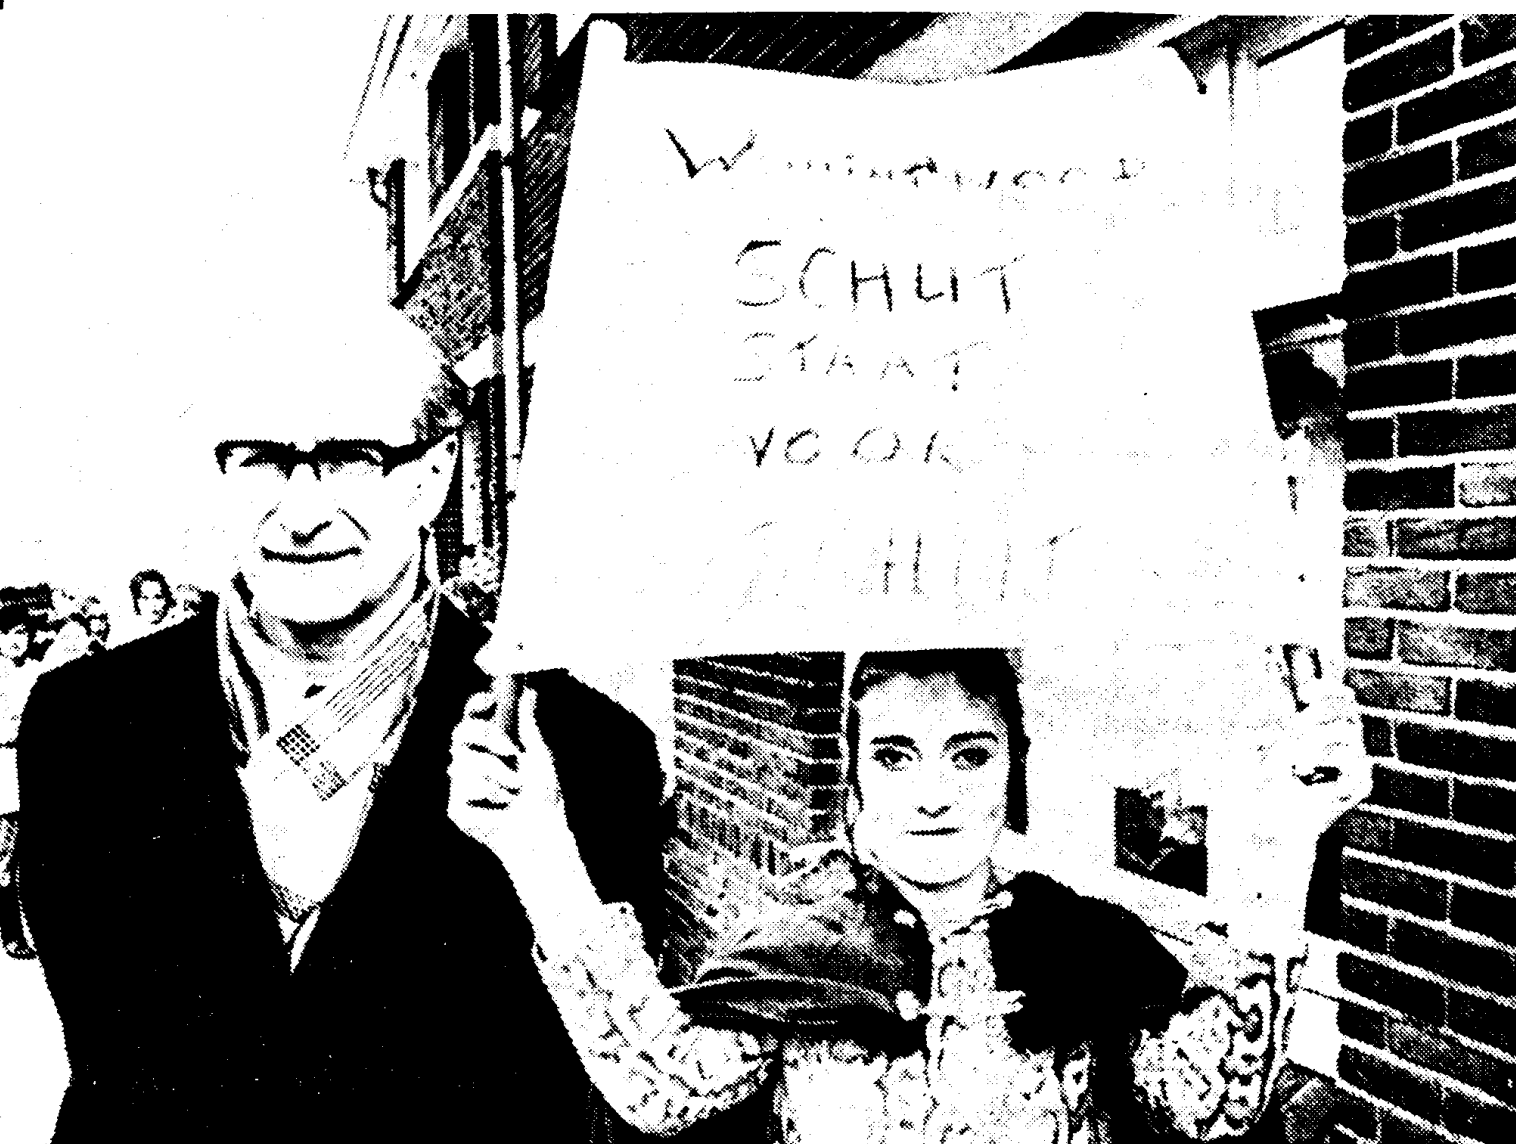 SCHUT
STAAT
VOOR
SCHUT